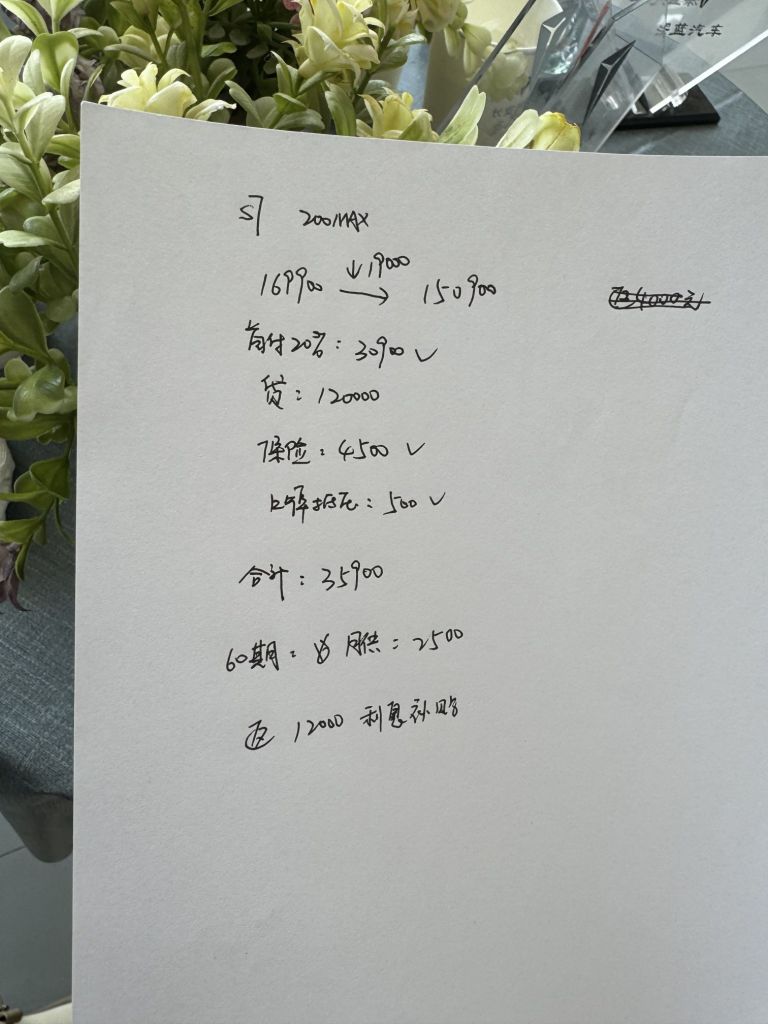 深蓝汽车
S7 200MAX
↓19000
169900 → 150900
首付20%: 30900 ✓
贷: 120000
保险: 4500 ✓
上牌抵押: 500 ✓
合计: 35900
60期: 月供: 2500
返 12000 利息补贴